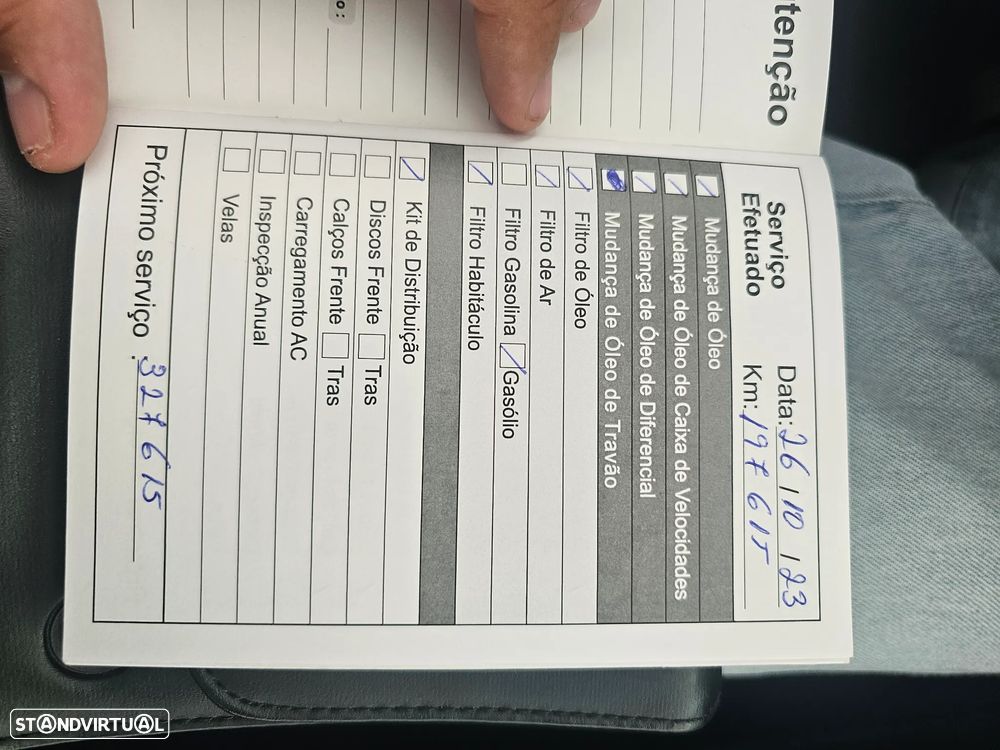 tenção
o :
Serviço Efetuado
Data: 26 / 10 / 23
Km: 197 615
Mudança de Óleo
Mudança de Óleo de Caixa de Velocidades
Mudança de Óleo de Diferencial
Mudança de Óleo de Travão
Filtro de Óleo
Filtro de Ar
Filtro Gasolina Gasólio
Filtro Habitáculo
Kit de Distribuição
Discos Frente Tras
Calços Frente Tras
Carregamento AC
Inspecção Anual
Velas
Próximo serviço : 327 615
STANDVIRTUAL